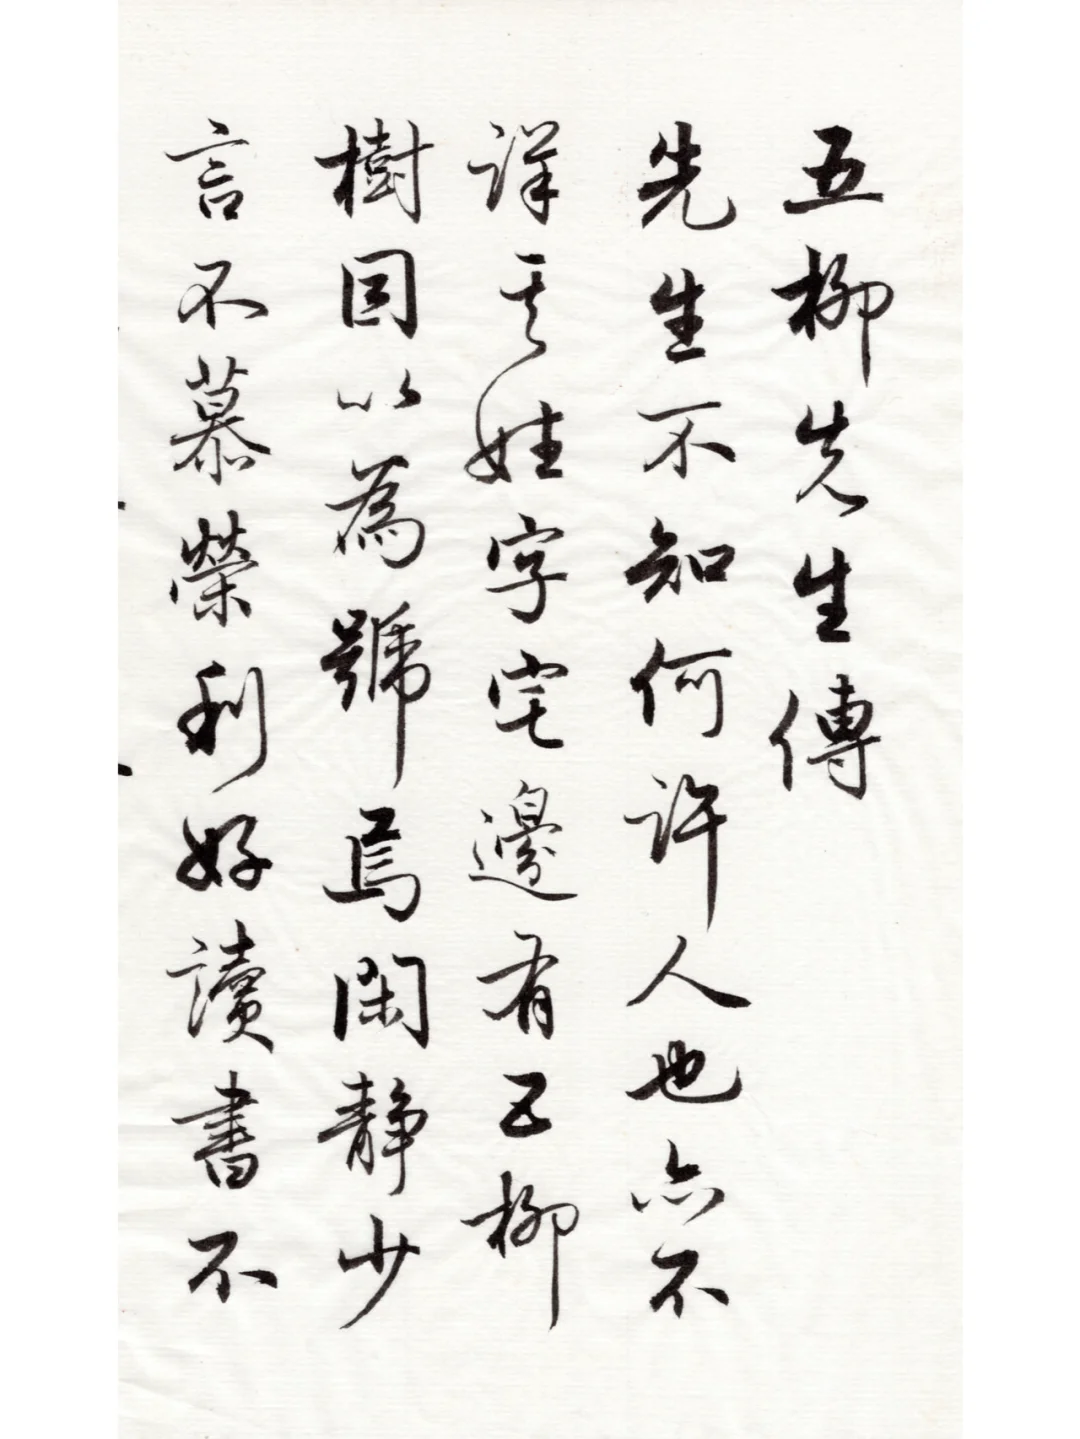 五柳先生傳
先生不知何許人也亦不
詳其姓字宅邊有五柳
樹因以為號焉閑靜少
言不慕榮利好讀書不